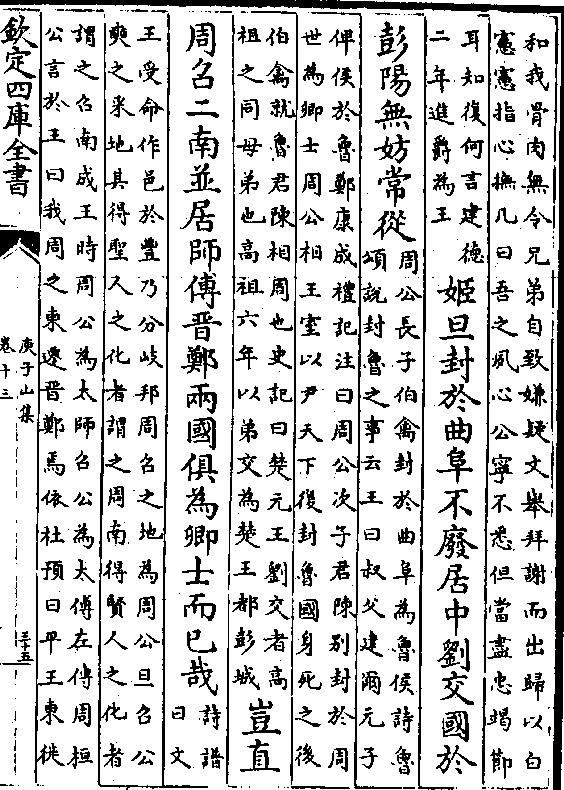 和我骨肉無令兄弟自致嫌疑文舉拜謝而出歸以白
憲憲指心撫几曰吾之夙心公寧不悉但當盡忠竭節
耳知復何言建德
二年進爵為王
姬旦封於曲阜不廢居中劉交國於
彭陽無妨常從
周公長子伯禽封於曲阜為魯侯詩魯
頌說封魯之事云王曰叔父建爾元子
俾侯於魯鄭康成禮記注曰周公次子君陳別封於周
世為卿士周公相王室以尹天下復封魯國身死之後
伯禽就魯君陳相周也史記曰楚元王劉交者高
祖之同母弟也高祖六年以弟交為楚王都彭城
豈直
周召二南並居師傅晉鄭兩國俱為卿士而已哉
詩譜
曰文
王受命作邑於豐乃分岐邦周召之地為周公旦召公
奭之采地其得聖人之化者謂之周南得賢人之化者
謂之召南成王時周公為太師召公為太傅左傳周桓
公言於王曰我周之東遷晉鄭焉依杜預曰平王東徙
欽定四庫全書
庾子山集
卷十三
三十五